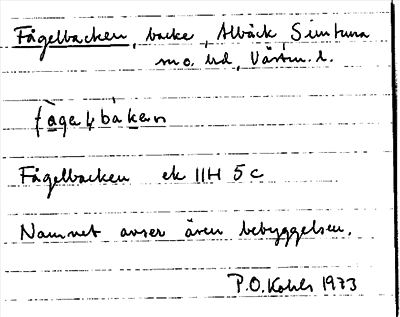 Fågelbacken, backe, Albäck Simtuna
sn o. hd, Västm. l.
Fågelbacken ek 11H 5c
Namnet avser även bebyggelsen.
P.O. Kohls 1973